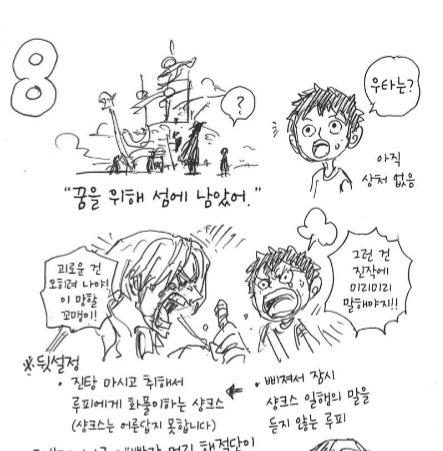 8
?
우타는?
아직
상처 없음
"꿈을 위해 섬에 남았어."
괴로운 건
오히려 나야!
이 망할
꼬맹이!!
그런 건
진작에
미리미리
말해야지!!
※뒷설정
• 진탕 마시고 취해서
루피에게 화풀이하는 샹크스
(샹크스는 어른답지 못합니다)
←
• 삐져서 잠시
샹크스 일행의 말을
듣지 않는 루피
"빨간 머리 해적단이